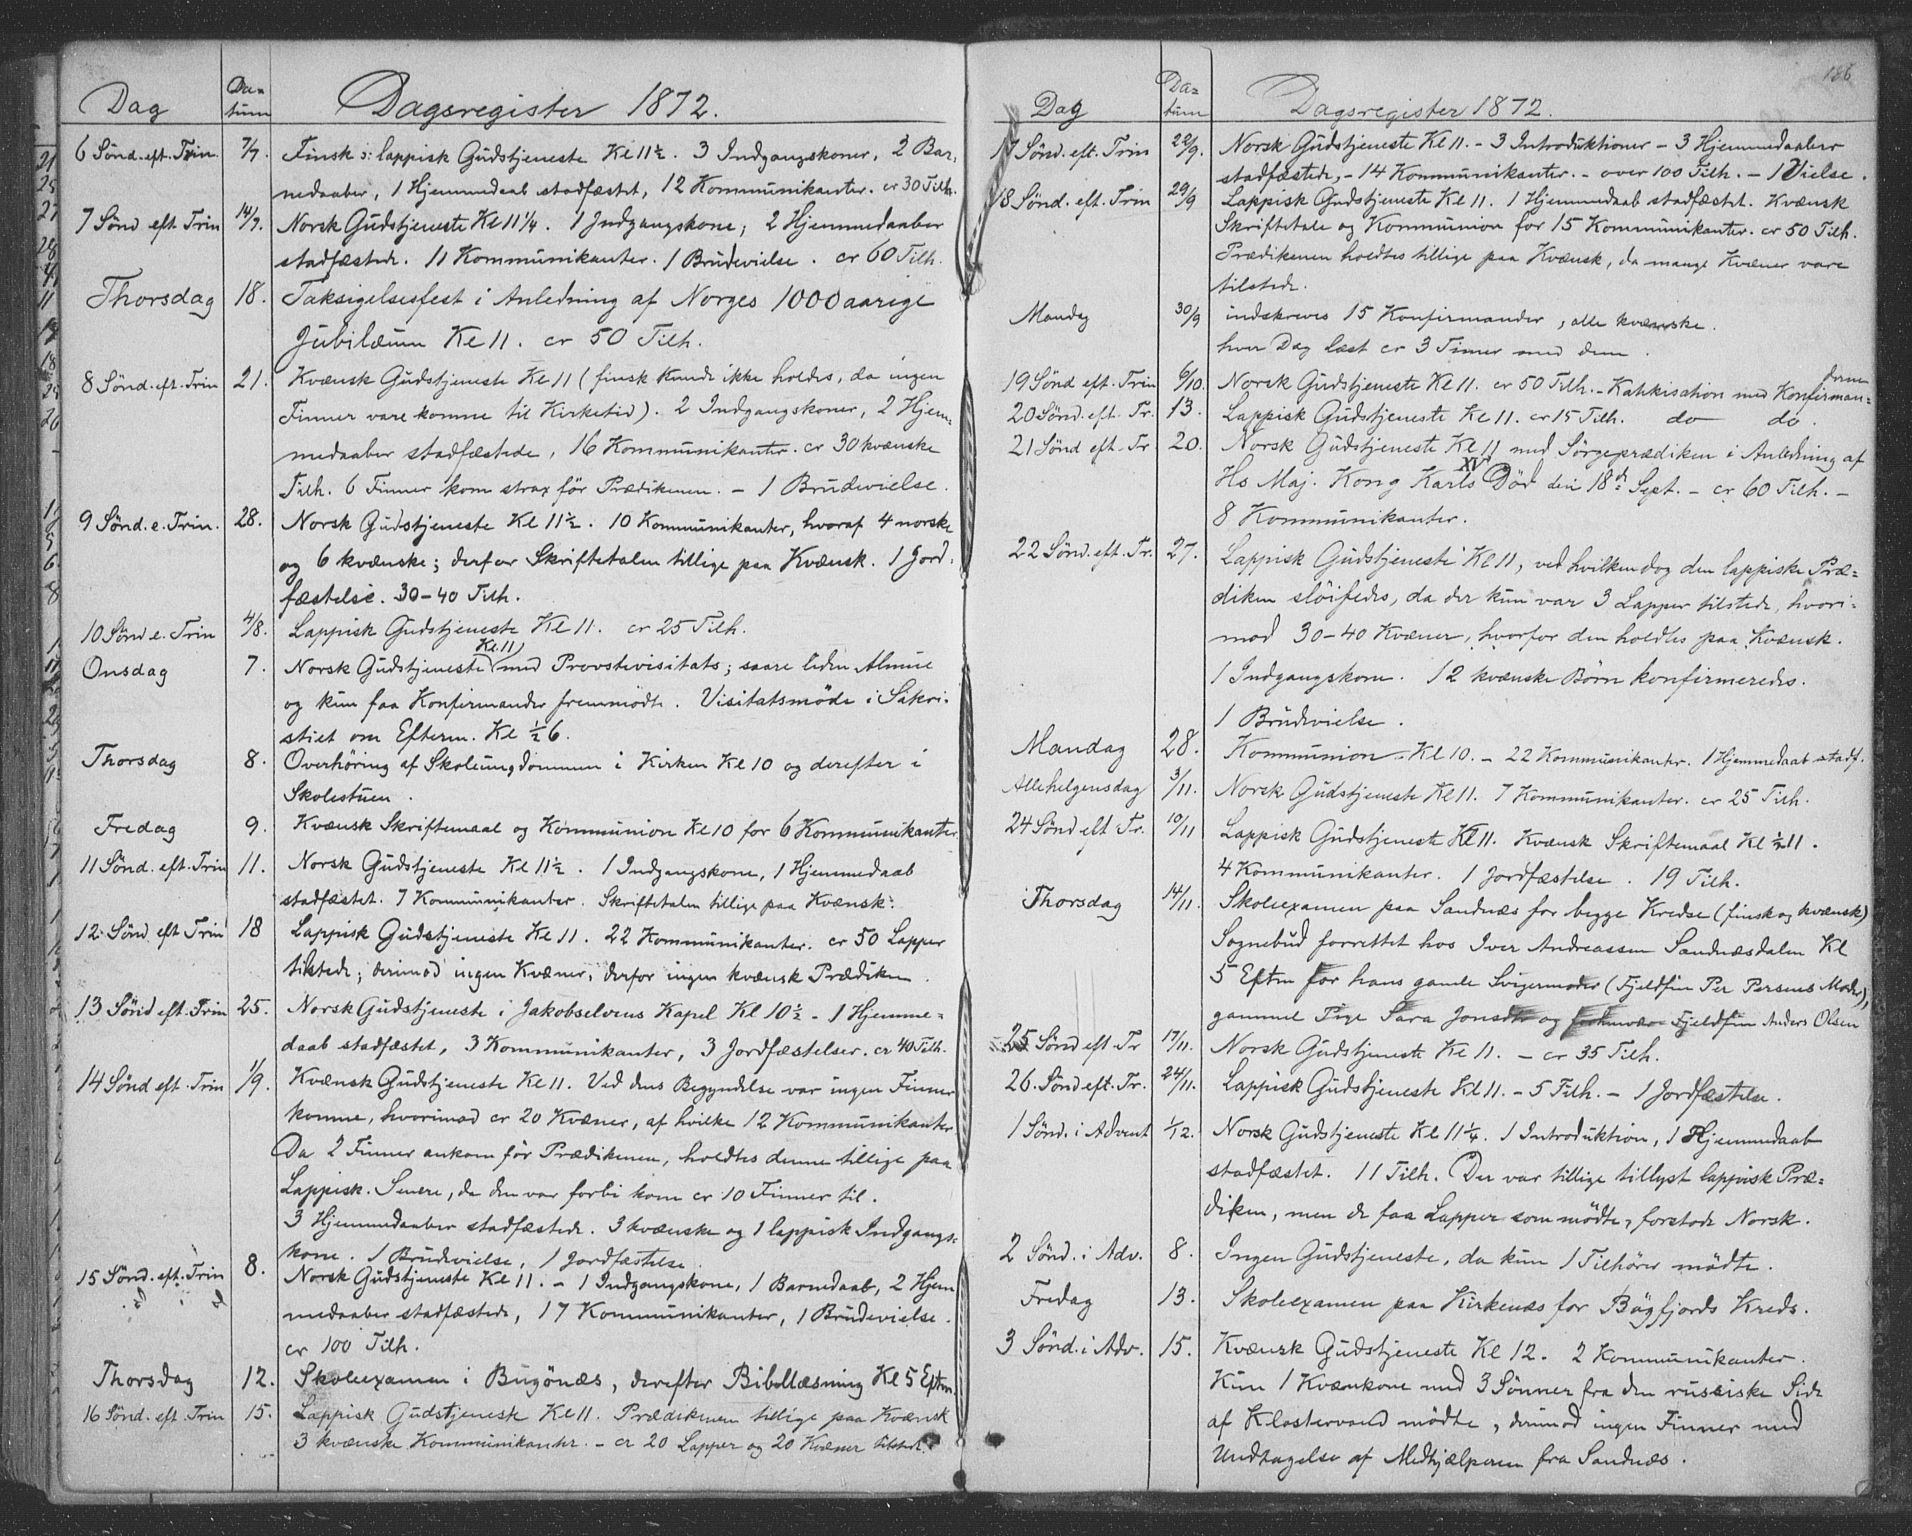 Dag Da= tum Dagsregister 1872.
6 Sönd. eft. Trin. 7/7. Finsk ɔ: lappisk Gudstjeneste Kl 11½. 3 Indgangskoner, 2 Bar-
nedaaber, 1 Hjemmedaab stadfæstet, 12 Kommunikanter. cr 30 Tilh.
7 Sönd eft. Trin 14/7. Norsk Gudstjeneste Kl 11¼. 1 Indgangskone; 2 Hjemmedaaber
stadfæstede. 11 Kommunikanter. 1 Brudevielse. cr 60 Tilh.
Thorsdag 18. Taksigelsesfest i Anledning af Norges 1000 aarige
Jubilæum Kl 11. cr 50 Tilh.
8 Sönd. eft. Trin 21. Kvænsk Gudstjeneste Kl 11 (finsk kunde ikke holdes, da ingen
Finner vare komne til Kirketid). 2 Indgangskoner, 2 Hjem-
medaaber stadfæstede, 16 Kommunikanter. cr 30 kvænske
Tilh. 6 Finner kom strax för Prædikenen. - 1 Brudevielse.
9 Sönd. e. Trin. 28. Norsk Gudstjeneste Kl 11½. 10 Kommunikanter, hvoraf 4 norske
og 6 kvænske; derfor Skriftetalen tillige paa Kvænsk. 1 Jord-
fæstelse. 30-40 Tilh.
10 Sönd e. Trin 4/8. Lappisk Gudstjeneste Kl 11. cr 25 Tilh.
Onsdag 7. Norsk Gudstjeneste Kl. 11 med Provstevisitats; saare liden Almue
og kun faa Konfirmander fremmödte. Visitatsmöde i Sakri-
stiet om Efterm. Kl ½6.
Thorsdag 8. Overhöring af Skoleungdommen i Kirken Kl 10 og derefter i
Skolestuen.
Fredag 9. Kvænsk Skriftemaal og Kommunion Kl 10 for 6 Kommunikanter
11 Sönd. eft. Trin 11. Norsk Gudstjeneste Kl 11½. 1 Indgangskone, 1 Hjemmedaab
stadfæstet. 7 Kommunikanter. Skriftetalen tillige paa Kvænsk.
12. Sönd eft Trin 18 Lappisk Gudstjeneste Kl 11. 22 Kommunikanter. cr 50 Lapper
tilstede; derimod ingen Kvæner, derfor ingen kvænsk Prædiken.
13 Sönd eft. Trin 25. Norsk Gudstjeneste i Jakobselvens Kapel Kl 10½ - 1 Hjemme=
daab stadfæstet, 3 Kommunikanter, 3 Jordfæstelser. cr 40 Tilh.
14 Sönd eft. Trin 1/9. Kvænsk Gudstjeneste Kl 11. Ved dens Begyndelse var ingen Finner
komne, hvorimod cr 20 Kvæner, af hvilke 12 Kommunikanter
Da 2 Finner ankom för Prædikenen, holdtes denne tillige paa
Lappisk. Senere, da den var forbi kom cr 10 Finner til.
3 Hjemmedaaber stadfæstede. 3 kvænske og 1 lappisk Indgangs=
kone. 1 Brudevielse, 1 Jordfæstelse.
15 Sönd. eft. Trin 8. Norsk Gudstjeneste Kl 11. - 1 Indgangskone, 1 Barnedaab, 2 Hjem
medaaber stadfæstede, 17 Kommunikanter, 1 Brudevielse.
cr 100 Tilh.
Thorsdag 12. Skoleexamen i Bugönæs, derefter Bibellæsning Kl 5 Eftm.
16 Sönd. eft. Trin 15. Lappisk Gudstjeneste Kl 11. Prædikenen tillige paa Kvænsk
3 kvænske Kommunikanter. - cr 20 Lapper og 20 Kvæner tilstede.
186
Dag Da= tum Dagsregister 1872.
17 Sönd. eft. Trin 22/9. Norsk Gudstjeneste Kl 11. - 3 Introduktioner - 3 Hjemmedaaber
stadfæstede, - 14 Kommunikanter. - over 100 Tilh. - 1 Vielse.
18 Sönd. eft. Trin 29/9 Lappisk Gudstjeneste Kl 11. 1 Hjemmedaab stadfæstet. Kvænsk
Skriftetale og Kommunion for 15 Kommunikanter. cr 50 Tilh.
Prædikenen holdtes tillige paa Kvænsk, da mange Kvæner vare
tilstede.
Mandag 30/9 indskreves 15 Konfirmander, alle kvænske.
hver Dag læst cr 3 Timer med dem.
19 Sönd eft. Trin 6/10. Norsk Gudstjeneste Kl 11. cr 50 Tilh. - Katekisation med Konfirman= derne
20 Sönd. eft. Tr. 13. Lappisk Gudstjeneste Kl 11. cr 15 Tilh. do do.
21 Sönd eft. Tr 20. Norsk Gudstjeneste Kl 11 med Sörgeprædiken i Anledning af
Hs Maj. Kong Karls XV Död den 18de Sept. - cr 60 Tilh. -
8 Kommunikanter.
22 Sönd. eft. Tr. 27. Lappisk Gudstjeneste Kl 11, ved hvilken dog den lappiske Præ=
diken slöifedes, da der kun var 3 Lapper tilstede, hvori-
mod 30-40 Kvæner, hvorfor den holdtes paa Kvænsk.
1 Indgangskone. 12 kvænske Börn konfirmeredes.
1 Brudevielse.
Mandag 28. Kommunion Kl 10. - 22 Kommunikanter. 1 Hjemmedaab stadf.
Allehelgensdag 3/11. Norsk Gudstjeneste Kl 11. 7 Kommunikanter. cr 25 Tilh.
24 Sönd eft Tr. 10/11 Lappisk Gudstjeneste Kl 11. Kvænsk Skriftemaal Kl ½11.
4 Kommunikanter. 1 Jordfæstelse. 19 Tilh.
Thorsdag 14/11. Skoleexamen paa Sandnæs for begge Kredse (finsk og kvænsk)
Sognebud forrettet hos Iver Andreassen Sandnæsdalen Kl
5 Eftm for hans gamle Svigermoder (Fjeldfin Per Persens Moder),
gammel Pige Sara Jonsdtr og Fjeldfin Anders Olsen
25 Sönd eft. Tr 17/11. Norsk Gudstjeneste Kl 11. - cr 35 Tilh.
26. Sönd eft. Tr. 24/11. Lappisk Gudstjeneste Kl 11. - 5 Tilh. - 1 Jordfæstelse.
1 Sönd. i Advent 1/12. Norsk Gudstjeneste Kl 11¼. 1 Introduktion, 1 Hjemmedaab
stadfæstet. 11 Tilh. Der var tillige tillyst lappisk Præ=
diken, men de faa Lapper som mödte, forstode Norsk.
2 Sönd. i Adv. 8. Ingen Gudstjeneste, da kun 1 Tilhörer mödte.
Fredag 13. Skoleexamen paa Kirkenæs for Bögfjords Kreds.
3 Sönd. i Adv. 15. Kvænsk Gudstjeneste Kl 12. 2 Kommunikanter.
Kun 1 Kvænkone med 3 Sönner fra den russiske Side
af Klostervand mödte, derimod ingen Finner med
Undtagelse af Medhjælperen fra Sandnæs.